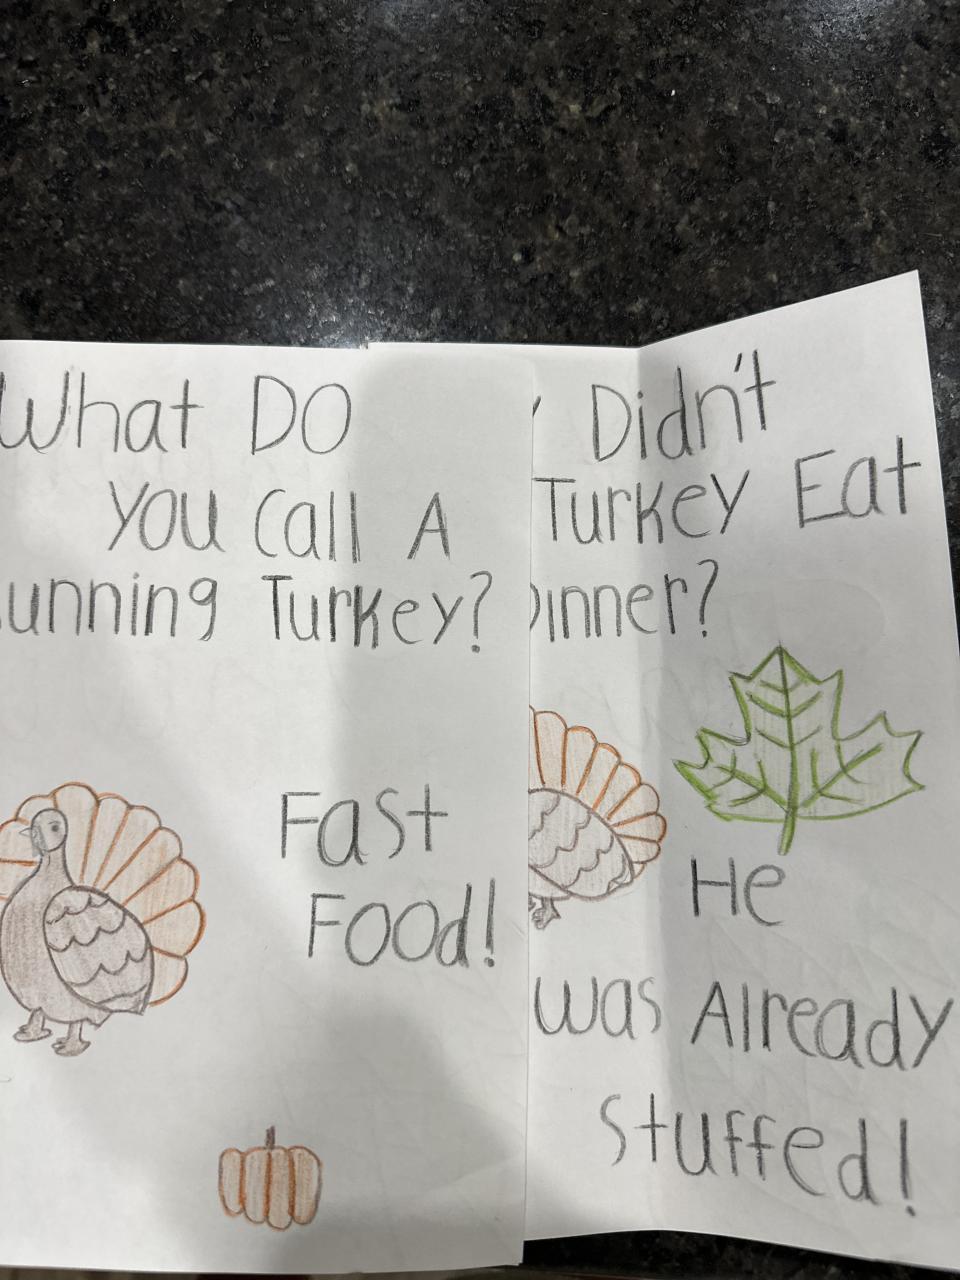 What DO
YOU Call A
unning Turkey?
Fast
Food!
Didn't
Turkey Eat
inner?
He
was Already
Stuffed!